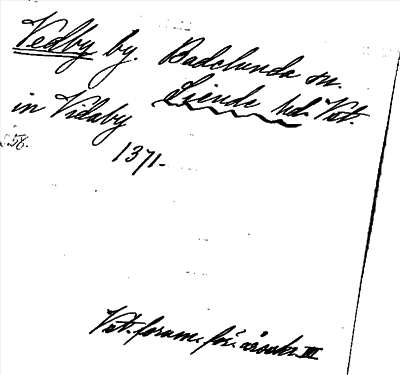 Vedby by. Badelunda sn.
Siende hd. Vstm.
in Vidaby
1371.
Vstm. fornm. för. årsskr. III